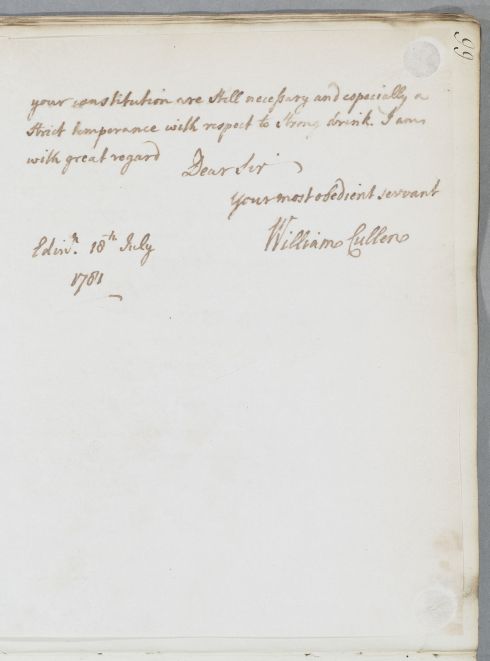 99
your constitution are still necessary and especially a
strict temperance with respect to strong drink. I am
with great regard
Dear Sir
Your most obedient servant
William Cullen
Edinr. 18th July
1781